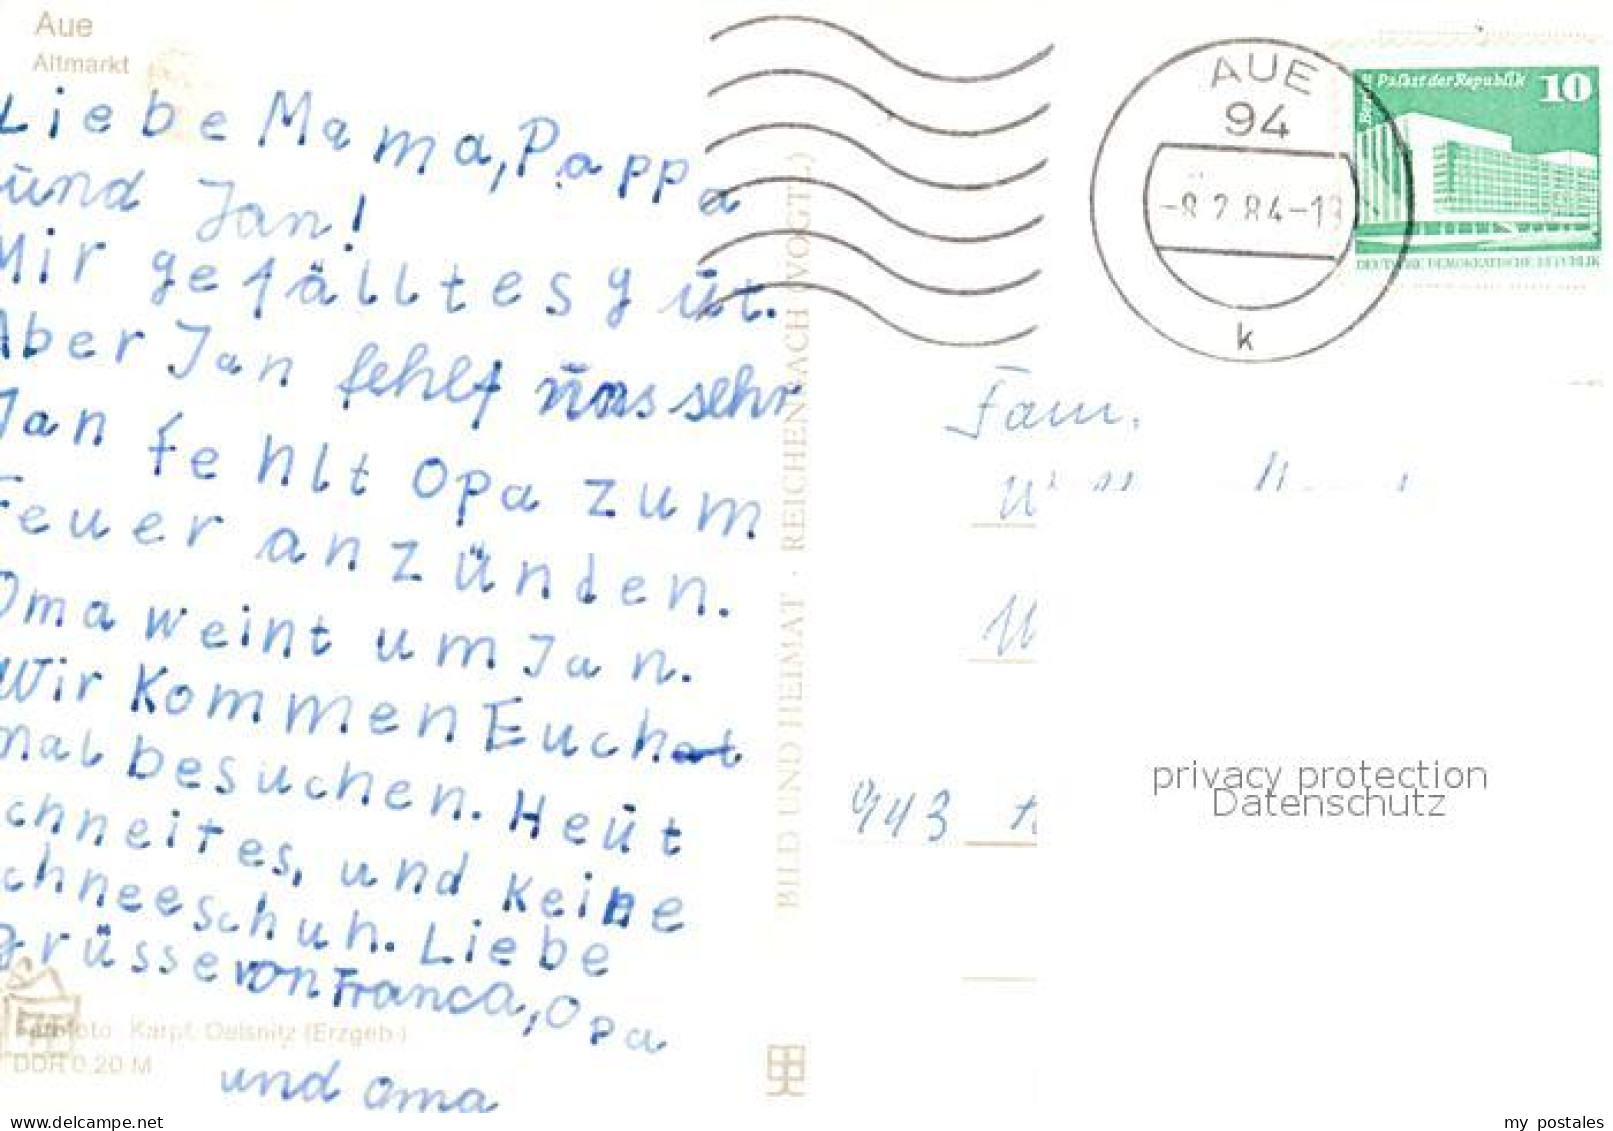 Aue
Altmarkt
Liebe Mama, Pappa
und Jan!
Mir gefällt es gut.
Aber Jan fehlt uns sehr
Jan fehlt Opa zum
Feuer anzünden.
Oma weint um Jan.
Wir kommen Euch
mal besuchen. Heut
schneit es, und keine
schneeschuh. Liebe
Grüsse von Franca, Opa
und Oma
Farbfoto: Karpf, Oelsnitz (Erzgeb.)
DDR 0,20 M
BILD UND HEIMAT · REICHENBACH (VOGTL)
AUE
94
-8.2.84-18
k
Berlin Palast der Republik 10
DEUTSCHE DEMOKRATISCHE REPUBLIK
Fam.
943
privacy protection
Datenschutz
delcampe.net
my_postales